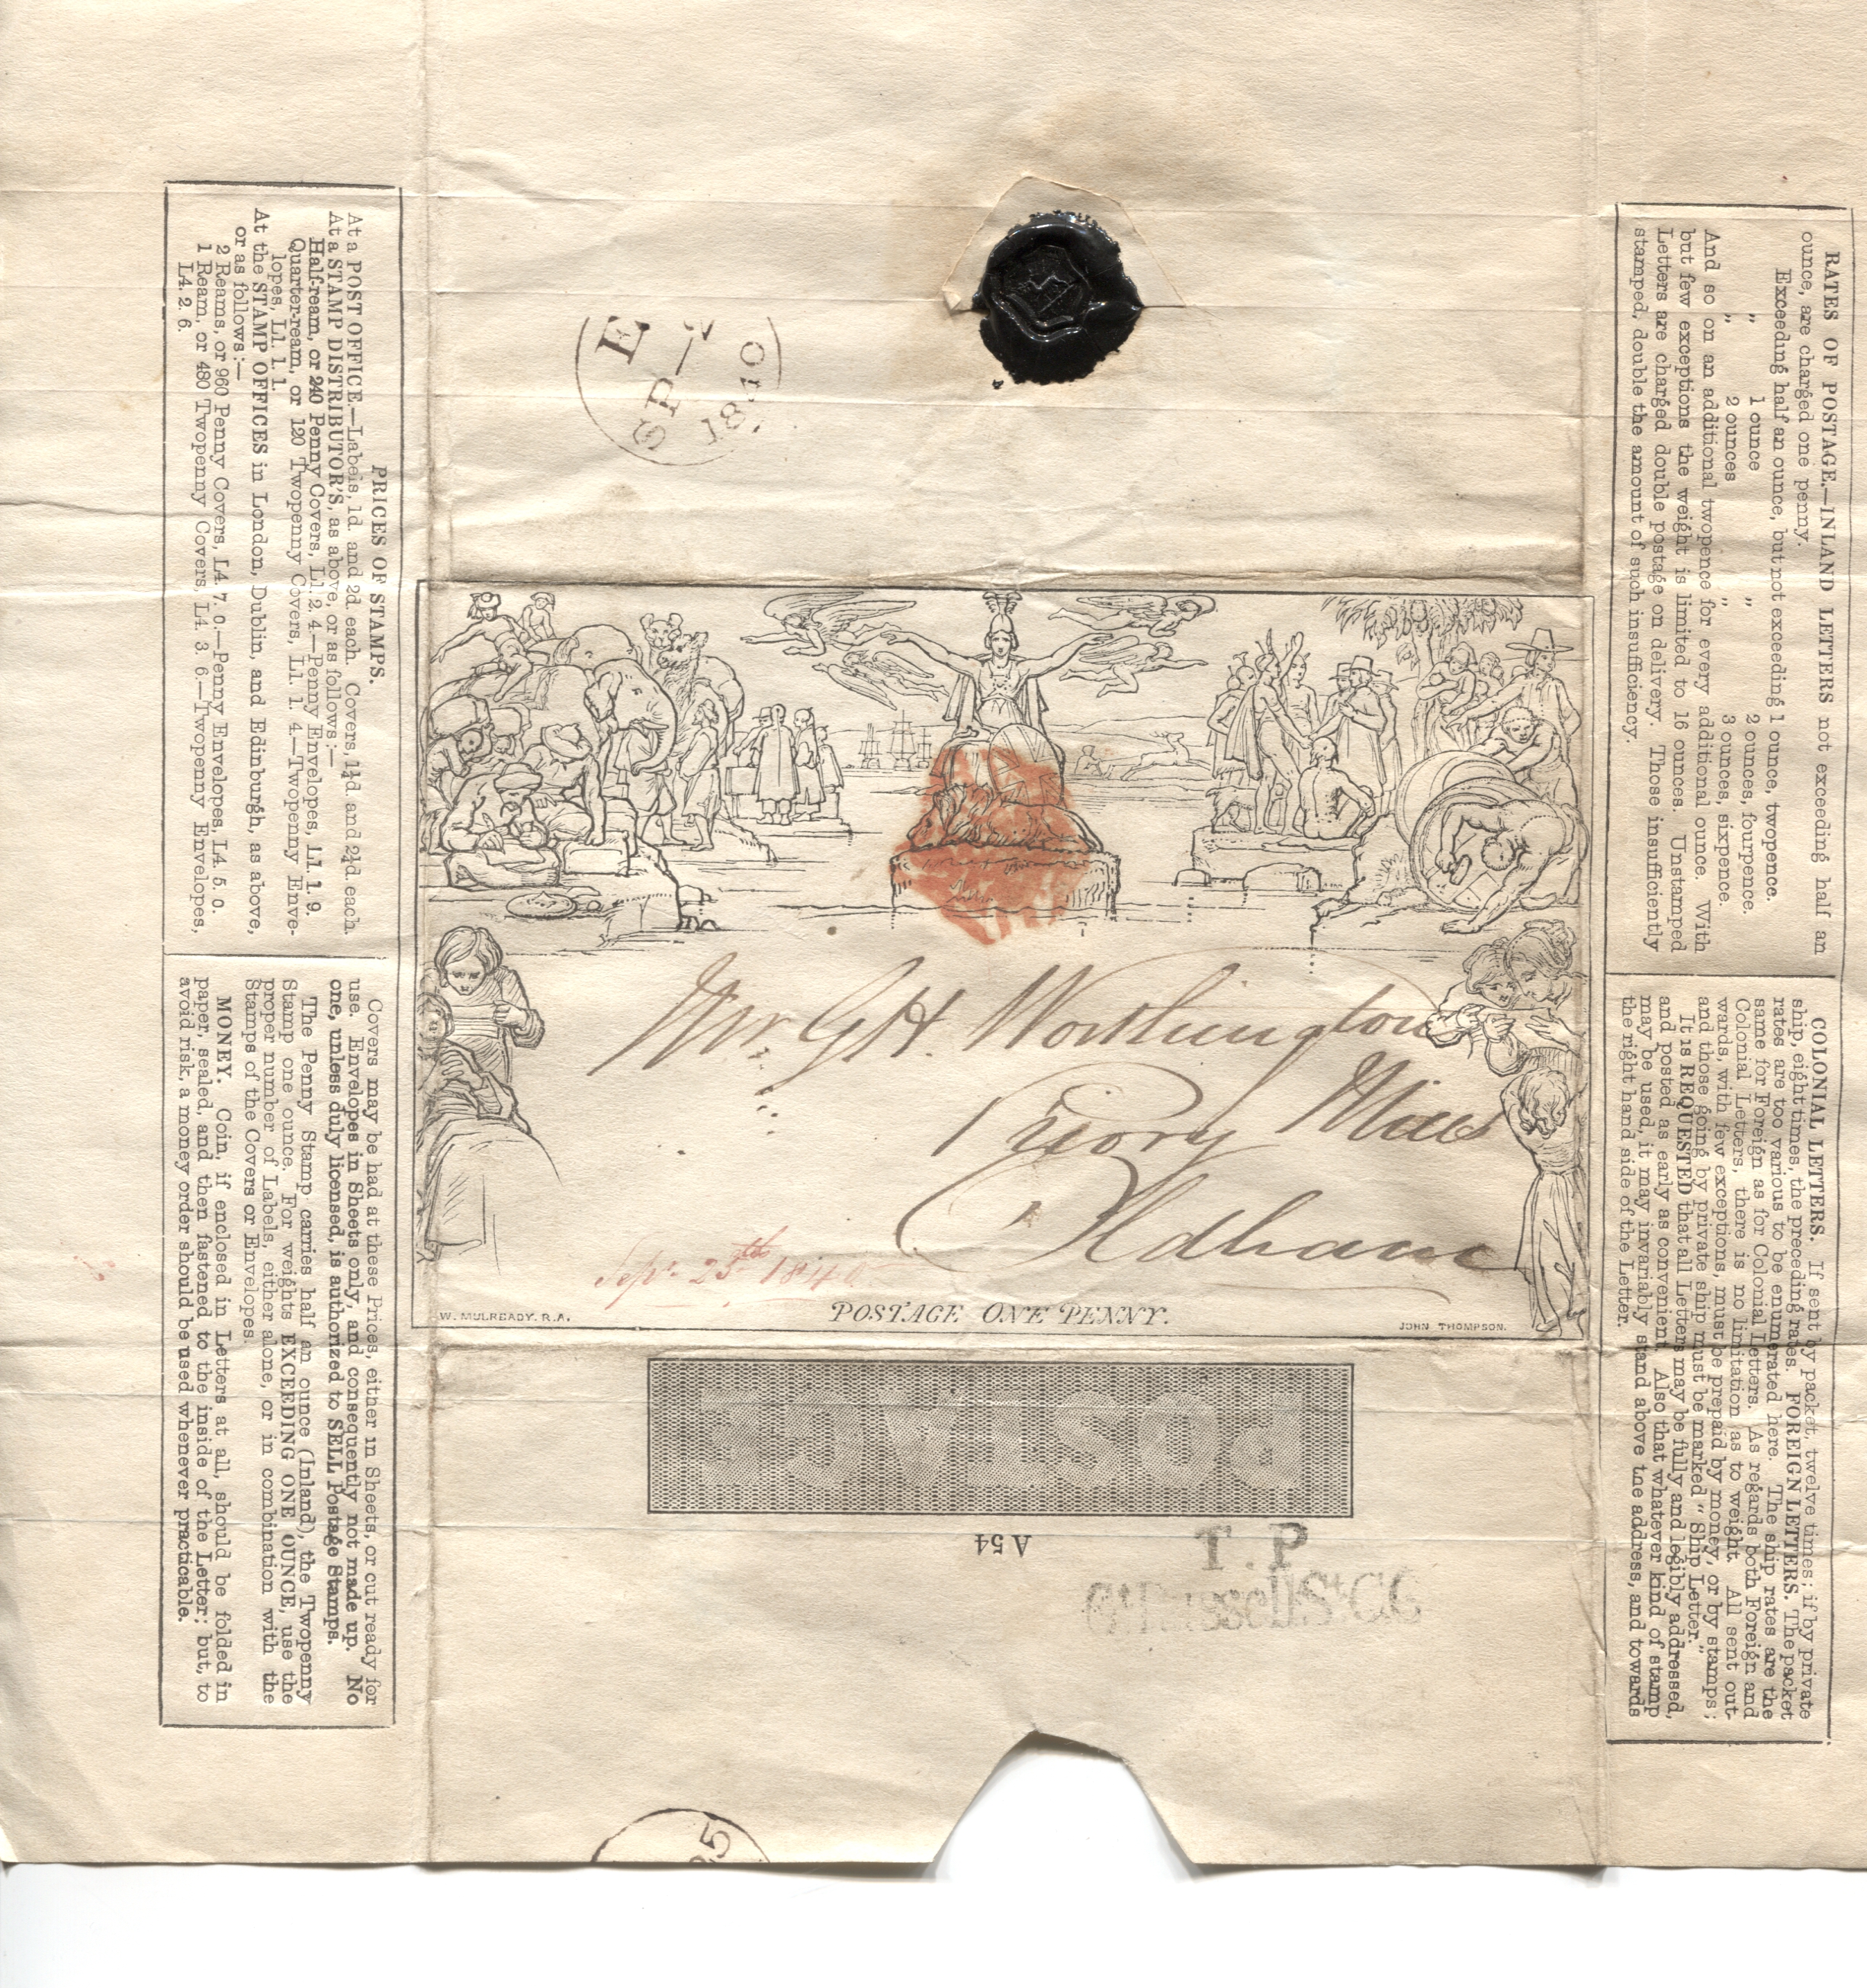 PRICES OF STAMPS.
At a POST OFFICE.—Labels, 1d. and 2d. each. Covers, 1¼d. and 2¼d. each.
At a STAMP DISTRIBUTOR'S, as above, or as follows:—
Half-ream, or 240 Penny Covers, L1. 2. 4.—Penny Envelopes, L1. 1. 9.
Quarter-ream, or 120 Twopenny Covers, L1. 1. 4—Twopenny Enve-
lopes, L1. 1. 1.
At the STAMP OFFICES in London, Dublin, and Edinburgh, as above,
or as follows:—
2 Reams, or 960 Penny Covers, L4. 7. 0.—Penny Envelopes, L4. 5. 0.
1 Ream, or 480 Twopenny Covers, L4. 3. 6.—Twopenny Envelopes,
L4. 2. 6.
Covers may be had at these Prices, either in Sheets, or cut ready for
use. Envelopes in Sheets only, and consequently not made up. No
one, unless duly licensed, is authorized to SELL Postage Stamps.
The Penny Stamp carries half an ounce (Inland), the Twopenny
Stamp one ounce. For weights EXCEEDING ONE OUNCE, use the
proper number of Labels, either alone, or in combination with the
Stamps of the Covers or Envelopes.
MONEY. Coin, if enclosed in Letters at all, should be folded in
paper, sealed, and then fastened to the inside of the Letter; but, to
avoid risk, a money order should be used whenever practicable.
E
SP
1840
Mr. G H. Worthington
Priory Mills
Oldham
Sepr. 25th 1840
W. MULREADY. R.A.
POSTAGE ONE PENNY.
JOHN THOMPSON.
POSTAGE
A 54
T. P
Gt Russell St C G
25
RATES OF POSTAGE.—INLAND LETTERS not exceeding half an
ounce, are charged one penny.
Exceeding half an ounce, but not exceeding 1 ounce, twopence.
„ 1 ounce „ 2 ounces, fourpence.
„ 2 ounces „ 3 ounces, sixpence.
And so on an additional twopence for every additional ounce. With
but few exceptions the weight is limited to 16 ounces. Unstamped
Letters are charged double postage on delivery. Those insufficiently
stamped, double the amount of such insufficiency.
COLONIAL LETTERS. If sent by packet, twelve times; if by private
ship, eight times, the preceding rates. FOREIGN LETTERS. The packet
rates are too various to be enumerated here. The ship rates are the
same for Foreign as for Colonial Letters. As regards both Foreign and
Colonial Letters, there is no limitation as to weight. All sent out-
wards, with few exceptions, must be prepaid by money, or by stamps;
and those going by private ship must be marked “Ship Letter.”
It is REQUESTED that all Letters may be fully and legibly addressed,
and posted as early as convenient. Also that whatever kind of stamp
may be used, it may invariably stand above the address, and towards
the right hand side of the Letter.